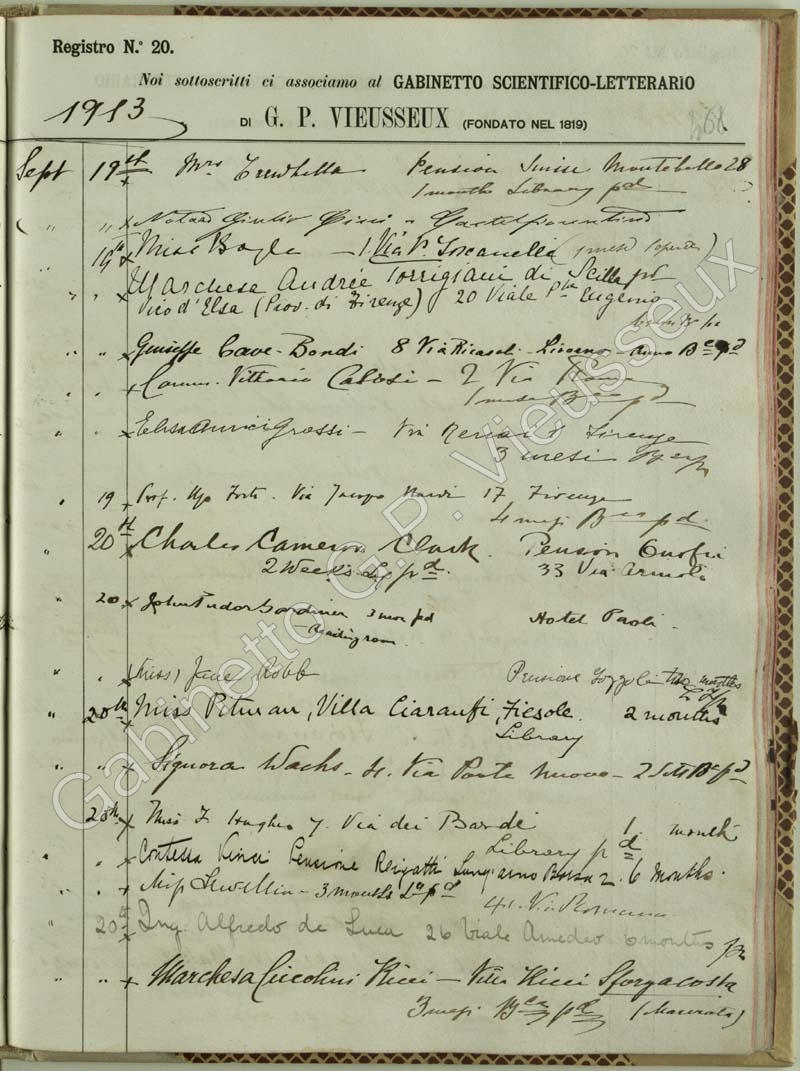 Registro N.º 20.
Noi sottoscritti ci associamo al GABINETTO SCIENTIFICO-LETTERARIO
1913
DI G. P. VIEUSSEUX (FONDATO NEL 1819)
Sept 19 Mrs Trewhella Pension Suisse Montebello 28
1 month Library pd
" " Notaro Giulio Castelfiorentino
19th Miss Bogle - 1 Via P. Toscanella
" " Marchesa Andrée Torrigiani di Scilla pd
Vico d'Elsa (Prov. di Firenze) 20 Viale Ppe Eugenio
" " Giuseppe Cave-Bondi 8 Via Ricasoli - Livorno - Anno Bca pd
" " Comm. Vittorio - 2 Via
1 mese Bca pd
" " Elisa Grossi - Via Firenze
3 mesi
" 19 Prof. Ugo Forti. Via Jacopo Nardi 17 Firenze
4 mesi Bca pd.
" 20 Charles Cameron Clark. Pension
2 Weeks Lib pd. 33 Via
" 20 John Tudor Gardiner 3 mos pd Hotel Paoli.
- Reading room
" " (Miss) Jane Robb Pensione two months
" 20th Miss Pitman, Villa Ciaranfi, Fiesole. 2 months
Library
" " Signora Wachs - 4. Via Ponte Nuovo - 2 Sett Bca pd
20th Miss F. Hughes 7. Via dei Bardi 1 month
Library pd
" Contessa Vinci Pensione Rigatti Lungarno 2. 6 months.
" " Miss Lewellin - 3 months Lo pd
41. Via Romana
20 Ing. Alfredo de Luca 26 Viale Amedeo 6 months
" " Marchesa Ciccolini Ricci - Villa Ricci Sforzacosta
3 mesi Bca pd (Macerata)
Gabinetto G. P. Vieusseux